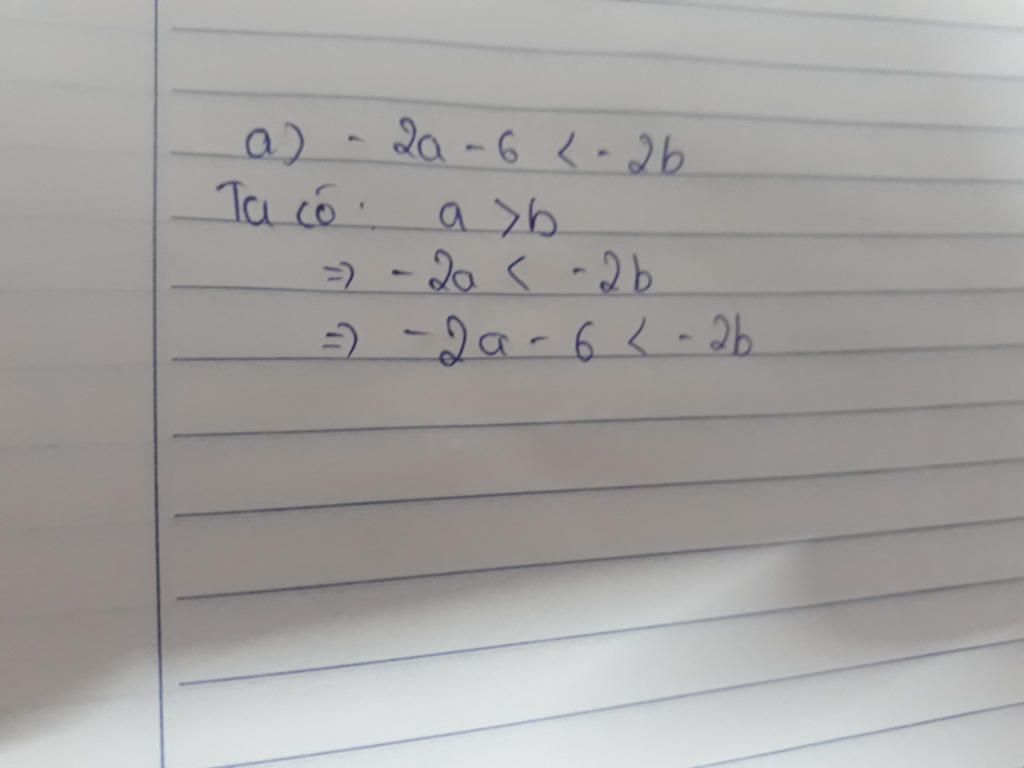 a) - 2a - 6 < - 2b
Ta có: a > b
=> - 2a < - 2b
=> - 2a - 6 < - 2b